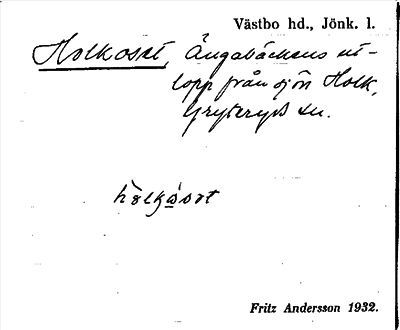 Västbo hd., Jönk. l.
Holkoset, Ängabäckens ut-
lopp från sjön Holk,
Gryteryds sn.
Fritz Andersson 1932.